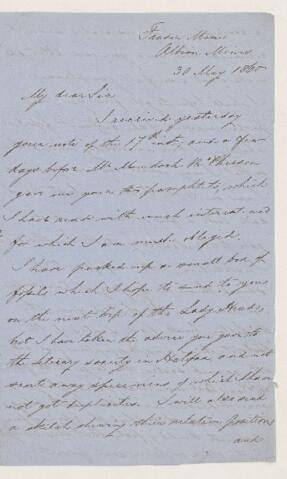 Fraser Mine
Albion Mines
30 May 1860
My dear Sir
I received yesterday
your note of the 17th inst, and a few
days before Mr Murdoch McPherson
gave me your two pamphlets, which
I have read with much interest and
for which I am much obliged.
I have packed up a small box of
fossils which I hope to send to you
on the next trip of the Lady Head,
but I have taken the advice you gave to
the literary society in Halifax and not
sent away specimens of which I have
not got duplicates. I will also send
a sketch shewing their relative positions
and